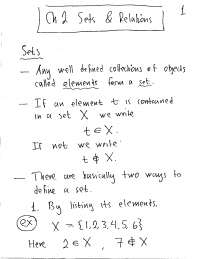 1
Ch 2 Sets & Relations
Sets
— Any well defined collections of objects
called elements form a set.
— If an element t is contained
in a set X we write
t ∈ X.
If not we write
t ∉ X.
— There are basically two ways to
define a set.
1. By listing its elements.
ex X = {1,2,3,4,5,6}
Here 2 ∈ X , 7 ∉ X